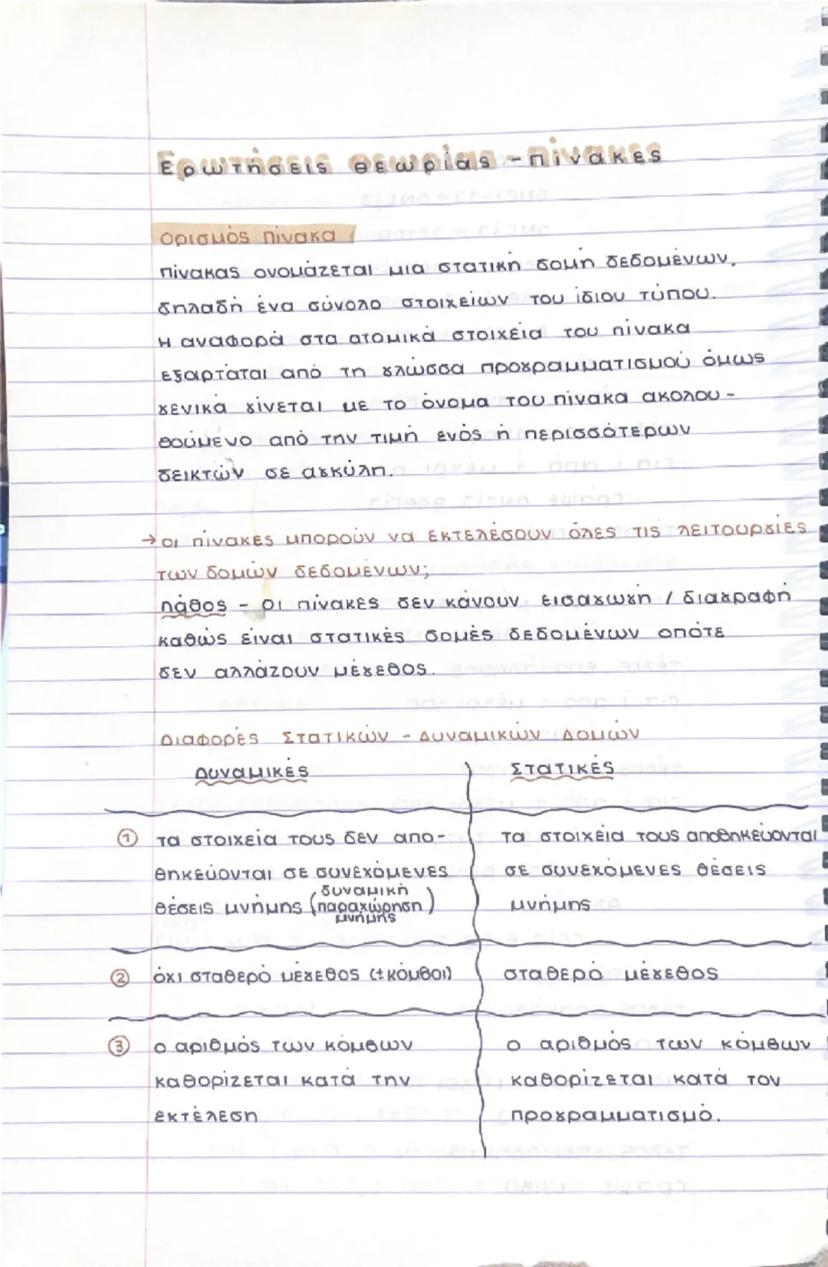 Ερωτήσεις θεωρίας - πίνακες
Ορισμός πίνακα
πίνακας ονομάζεται μια στατική δομή δεδομένων,
δηλαδή ένα σύνολο στοιχείων του ίδιου τύπου.
Η αναφορά στα ατομικά στοιχεία του πίνακα
εξαρτάται από τη γλώσσα προγραμματισμού όμως
γενικά γίνεται με το όνομα του πίνακα ακολου-
θούμενο από την τιμή ενός ή περισσότερων
δεικτών σε αγκύλη.
→ οι πίνακες μπορούν να εκτελέσουν όλες τις λειτουργίες
των δομών δεδομένων;
πάθος - οι πίνακες δεν κάνουν εισαγωγή / διαγραφή
καθώς είναι στατικές δομές δεδομένων οπότε
δεν αλλάζουν μέγεθος.
Διαφορές Στατικών - Δυναμικών Δομών
Δυναμικές
Στατικές
① τα στοιχεία τους δεν απο-
θηκεύονται σε συνεχόμενες
θέσεις μνήμης (δυναμική παραχώρηση μνήμης)
τα στοιχεία τους αποθηκεύονται
σε συνεχόμενες θέσεις
μνήμης
② όχι σταθερό μέγεθος (±κόμβοι)
σταθερό μέγεθος
③ ο αριθμός των κόμβων
καθορίζεται κατά την
εκτέλεση
ο αριθμός των κόμβων
καθορίζεται κατά τον
προγραμματισμό.